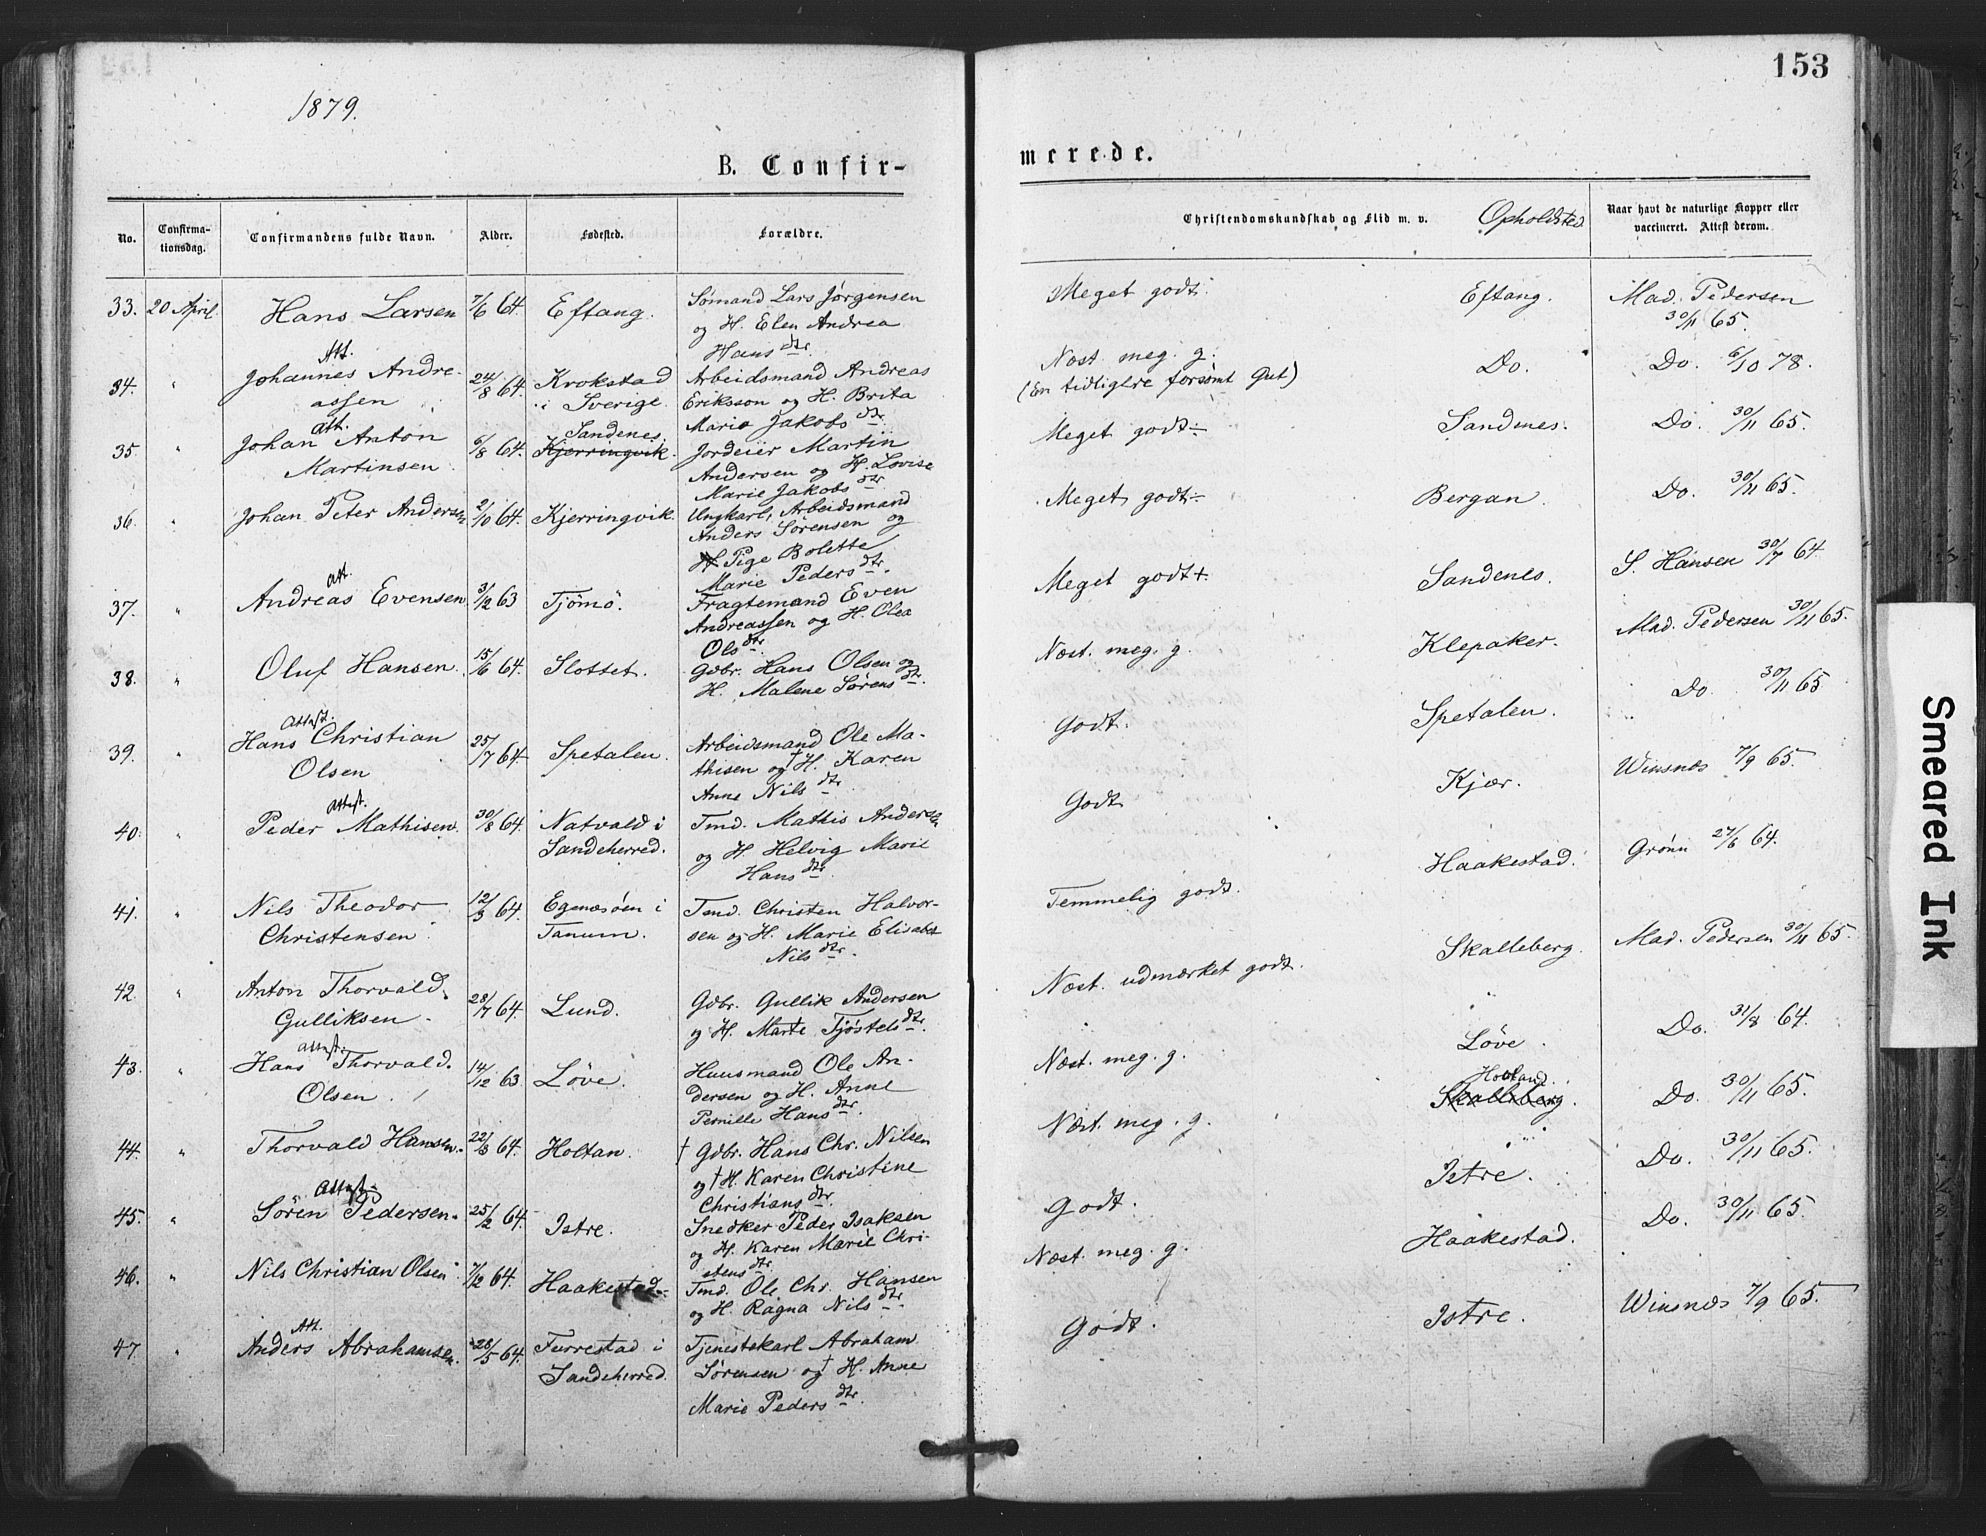 153
1879.
B. Confir-
merede.
No.
Confirma-
tionsdag.
Confirmandens fulde Navn.
Alder.
Fødested.
Forældre.
Christendomskundskab og Flid m. v.
Opholdsted.
Naar havt de naturlige Kopper eller
vaccineret. Attest derom.
33. 20 April. Hans Larsen 7/6 64. Eftang. Sømand Lars Jørgensen
og H. Elen Andrea
Hans dtr.
Meget godt. Eftang. Mad. Pedersen
30/11 65.
Att.
34. " Johannes Andre-
assen 24/8 64. Krokstad
i Sverige. Arbeidsmand Andreas
Eriksson og H. Brita
Maria Jakobs dtr.
Næst. meg. g. Do. Do. 6/10 78.
(En tidligere forsømt Gut)
Att.
35. " Johan Anton
Martinsen 6/8 64. Sandenes.
Kjerringvik. Jordeier Martin
Andersen og H. Lovise
Marie Jakobs dtr.
Meget godt ÷ Sandenes. Do. 30/11 65.
36. " Johan Peter Andersen 2/10 64. Kjerringvik. Ungkarl, Arbeidsmand
Anders Sørensen og
H Pige Bolette
Marie Peders dtr.
Meget godt ÷ Bergan. Do. 30/11 65.
Att.
37. " Andreas Evensen. 31/12 63 Tjømø. Fragtemand Even
Andreassen og H. Olea
Ols dtr.
Meget godt +. Sandenes. S. Hansen 30/7 64.
38. " Oluf Hansen. 15/6 64. Slottet. Gdbr. Hans Olsen og
H. Malene Sørens dtr.
Næst. meg. g. Klepaker. Mad. Pedersen 30/11 65.
Attest.
39. " Hans Christian
Olsen 25/7 64 Spetalen. Arbeidsmand Ole Ma-
thisen og † H. Karen
Anne Nils dtr.
Godt. Spetalen. Do. 30/11 65.
Attest.
40. " Peder Mathisen. 30/8 64. Natvald i
Sandeherred. Tmd. Mathis Andersen
og H. Helvig Marie
Hans dtr.
Godt Kjær. Winsnæs 7/9 65.
41. " Nils Theodor
Christensen 12/3 64. Egenæsøen i
Tanum. Tmd. Christen Halvor-
sen og H. Marie Elisabet
Nils dtr.
Temmelig godt. Haakestad. Grønn 27/6 64.
42. " Anton Thorvald
Gulliksen. 28/7 64. Lund. Gdbr. Gullik Andersen
og H. Marte Tjøstels dtr.
Næst. udmærket godt. Skalleberg. Mad. Pedersen 30/11 65.
Attest.
43. " Hans Thorvald
Olsen. 14/12 63 Løve. Huusmand Ole An-
dersen og H. Anne
Pernille Hans dtr.
Næst. meg. g. Løve. Do. 31/8 64.
44. " Thorvald Hansen. 22/3 64. Holtan. † Gdbr. Hans Chr. Nilsen
og † H. Karen Christine
Christians dtr.
Næst. meg. g. Holtand.
Skalleberg. Do. 30/11 65.
Attest.
45. " Søren Pedersen. 25/2 64. Istre. Snedker Peder Isaksen
og H. Karen Marie Chri-
stens dtr.
Godt. Istre. Do. 30/11 65.
46. " Nils Christian Olsen 7/12 64. Haakestad. Tmd. Ole Chr. Hansen
og H. Ragna Nils dtr.
Næst. meg. g. Haakestad. Do. 30/11 65.
Att.
47. " Anders Abrahamsen. 28/5 64. Furrestad i
Sandeherred. Tjenestekarl Abraham
Sørensen og † H. Anne
Marie Peders dtr.
Godt. Istre. Winsnæs 7/9 65.
Smeared Ink